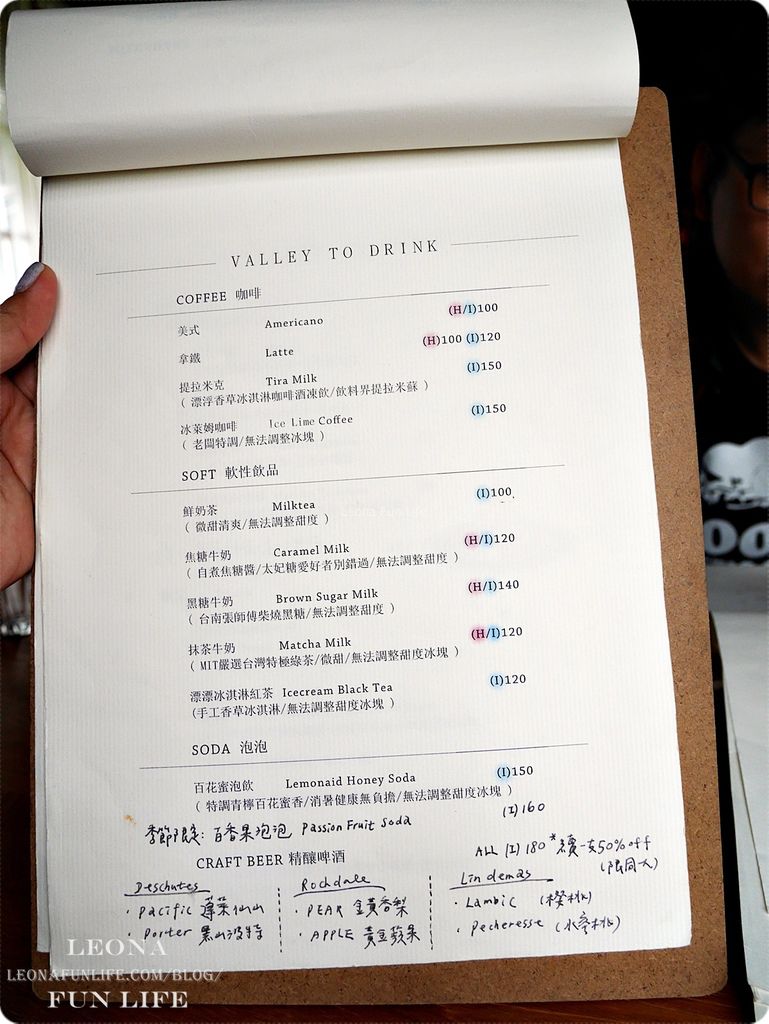 VALLEY TO DRINK
COFFEE 咖啡
美式 Americano (H/I)100
拿鐵 Latte (H)100 (I)120
提拉米克 Tira Milk (I)150
( 漂浮香草冰淇淋咖啡酒凍飲/飲料界提拉米蘇 )
冰萊姆咖啡 Ice Lime Coffee (I)150
( 老闆特調/無法調整冰塊 )
SOFT 軟性飲品
鮮奶茶 Milktea (I)100
( 微甜清爽/無法調整甜度 )
焦糖牛奶 Caramel Milk (H/I)120
( 自煮焦糖醬/太妃糖愛好者別錯過/無法調整甜度 )
黑糖牛奶 Brown Sugar Milk (H/I)140
( 台南張師傅柴燒黑糖/無法調整甜度 )
抹茶牛奶 Matcha Milk (H/I)120
( MIT嚴選台灣特極綠茶/微甜/無法調整甜度冰塊 )
漂漂冰淇淋紅茶 Icecream Black Tea (I)120
(手工香草冰淇淋/無法調整甜度冰塊 )
SODA 泡泡
百花蜜泡飲 Lemonaid Honey Soda (I)150
( 特調青檸百花蜜香/消暑健康無負擔/無法調整甜度冰塊 )
季節限定: 百香果泡泡 Passion Fruit Soda (I)160
CRAFT BEER 精釀啤酒 ALL (I) 180 * 續一支50% off
(限同人)
Deschutes Rochdale Lindemas
· Pacific 仙山 · PEAR 金黃香梨 · Lambic (櫻桃)
· Porter 黑山波特 · APPLE 黃金蘋果 · Pecheresse (水蜜桃)
LEONA
LEONAFUNLIFE.COM/BLOG/
FUN LIFE